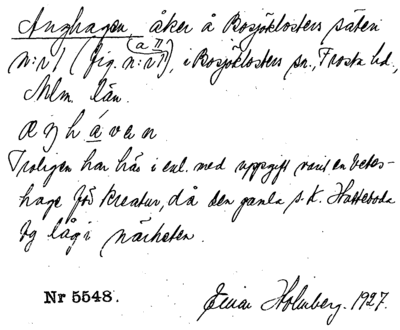 Änghagen, åker å Bosjöklosters säteri
n:r 1 (fig. n:r 1), i Bosjöklosters sn., Frosta hd.,
(a II)
Mlm. län.
æŋhávɐn
Troligen har här i enl. med uppgift varit en betes-
hage för kreatur, då den gamla s.k. Hatteboda
by låg i närheten.
Nr 5548.
Einar Holmberg. 1927.